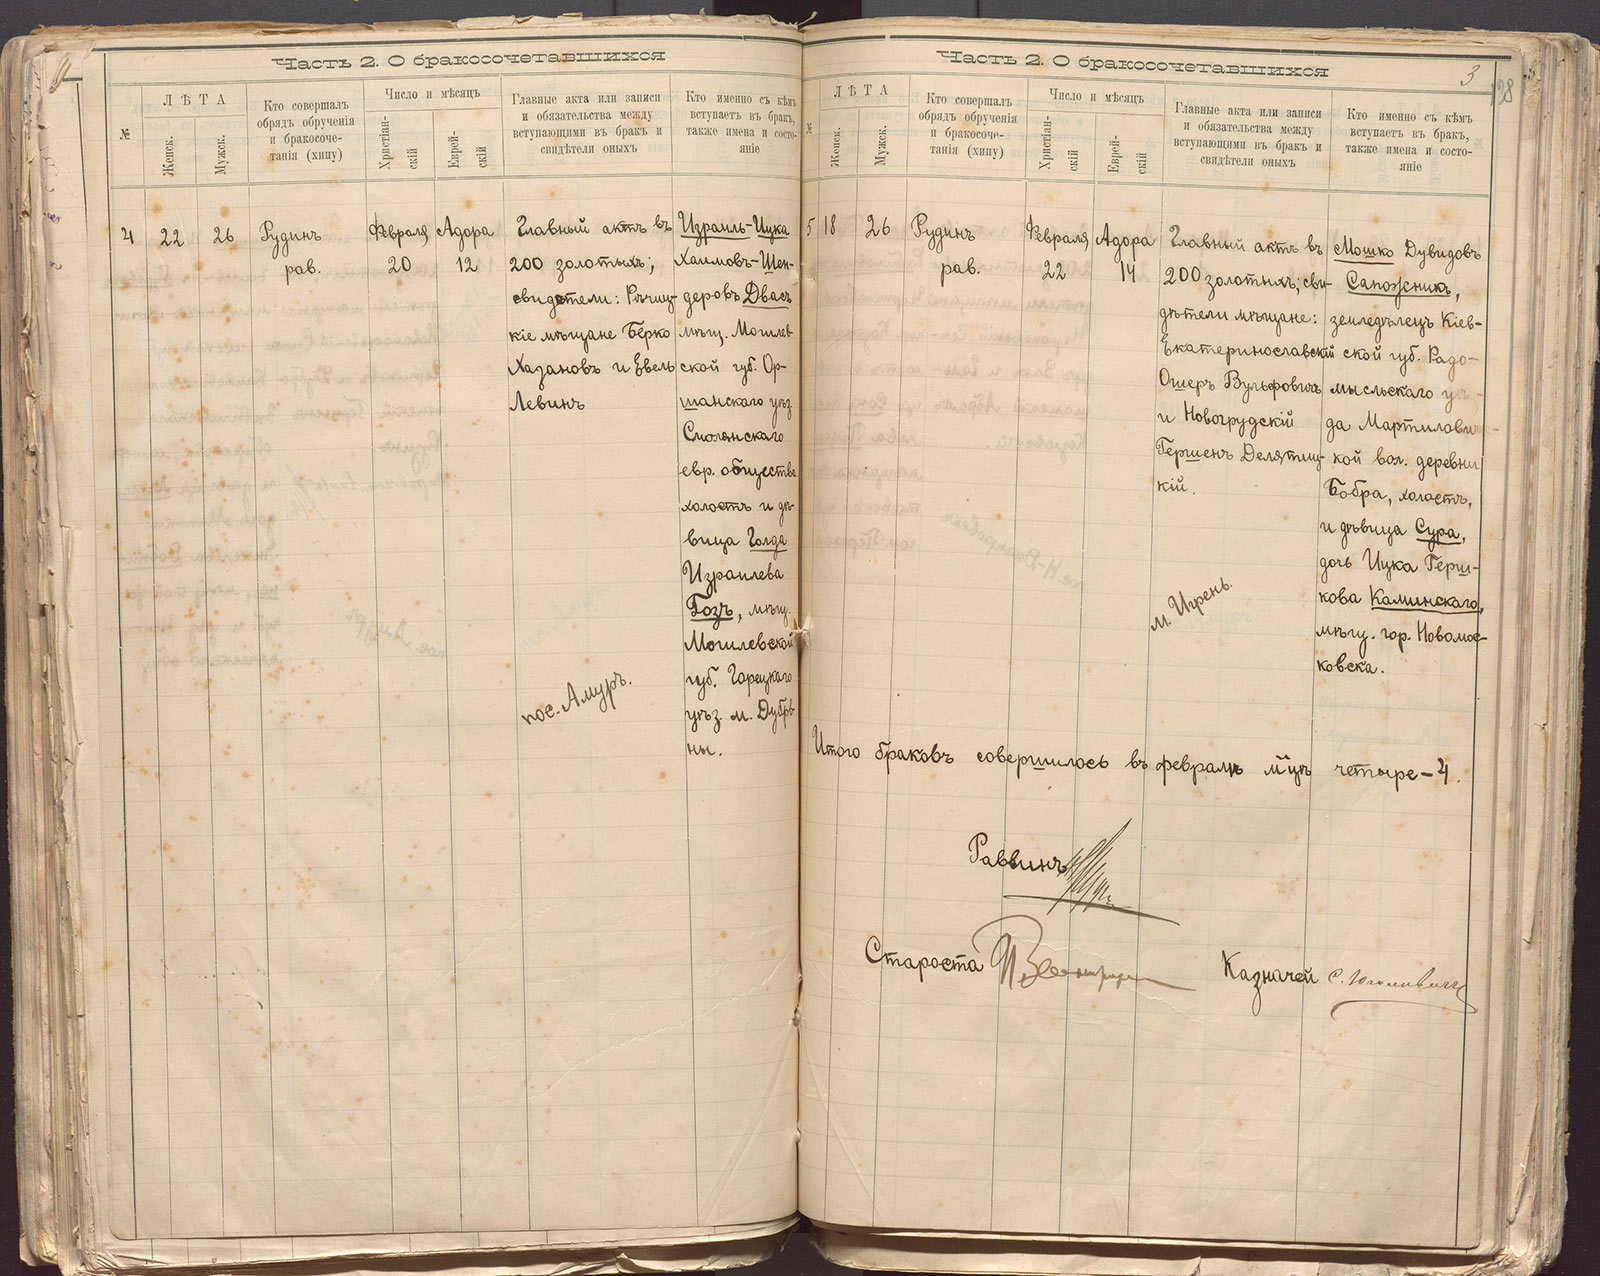 Часть 2. О бракосочетавшихся
№
ЛѢТА
Женск.
Мужск.
Кто совершалъ
обрядъ обрученія
и бракосоче-
танія (хипу)
Число и мѣсяцъ
Христіан-
скій
Еврей-
скій
Главные акта или записи
и обязательства между
вступающими въ бракъ и
свидѣтели оныхъ
Кто именно съ кѣмъ
вступаетъ въ бракъ,
также имена и состо-
яніе
4
22
26
Рудинъ
рав.
Февраля
20
Адора
12
Главный актъ въ
200 золотыхъ;
свидѣтели: Рѣчиц-
кіе мѣщане Берко
Хазановъ и Евель
Левинъ
пос. Амуръ.
Израиль-Ицка
Хаимовъ-Шен-
деровъ Двасъ
мѣщ. Могилев-
ской губ. Ор-
шанскаго уѣз.
Смолянскаго
евр. общества
холостъ и дѣ-
вица Голда
Израилева
Гозъ, мѣщ.
Могилевской
губ. Горецкаго
уѣз. м. Дубров-
ны.
Часть 2. О бракосочетавшихся
3
198
№
ЛѢТА
Женск.
Мужск.
Кто совершалъ
обрядъ обрученія
и бракосоче-
танія (хипу)
Число и мѣсяцъ
Христіан-
скій
Еврей-
скій
Главные акта или записи
и обязательства между
вступающими въ бракъ и
свидѣтели оныхъ
Кто именно съ кѣмъ
вступаетъ въ бракъ,
также имена и состо-
яніе
5
18
26
Рудинъ
рав.
Февраля
22
Адора
14
Главный актъ въ
200 золотыхъ; сви-
дѣтели мѣщане:
Екатеринославскій
Ошеръ Вульфовичъ
и Новогрудскій
Гершенъ Делятиц-
кій.
м. Игрень.
Мошко Дувидовъ
Сапожникъ,
земледѣлецъ Кіев-
ской губ. Радо-
мысльскаго уѣз-
да Мартилови
кой вол. деревни
Бобра, холостъ,
и дѣвица Сура,
дочь Ицка Герш-
кова Каминскаго,
мѣщ. гор. Новомос-
ковска.
Итого браковъ совершилось въ февралѣ м-цѣ четыре-4.
Раввинъ
Староста
Казначей